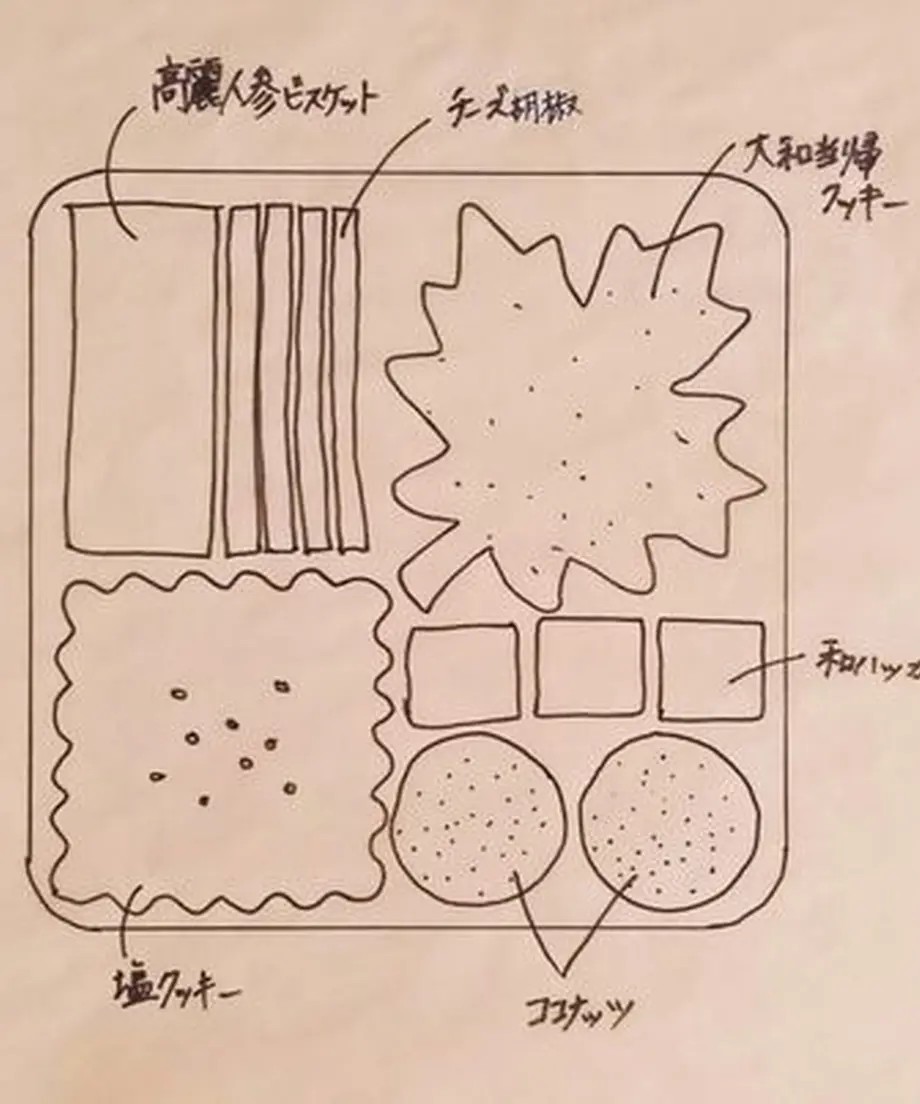 高麗人参ビスケット
チーズ胡椒
大和当帰
クッキー
和ハッカ
塩クッキー
ココナッツ